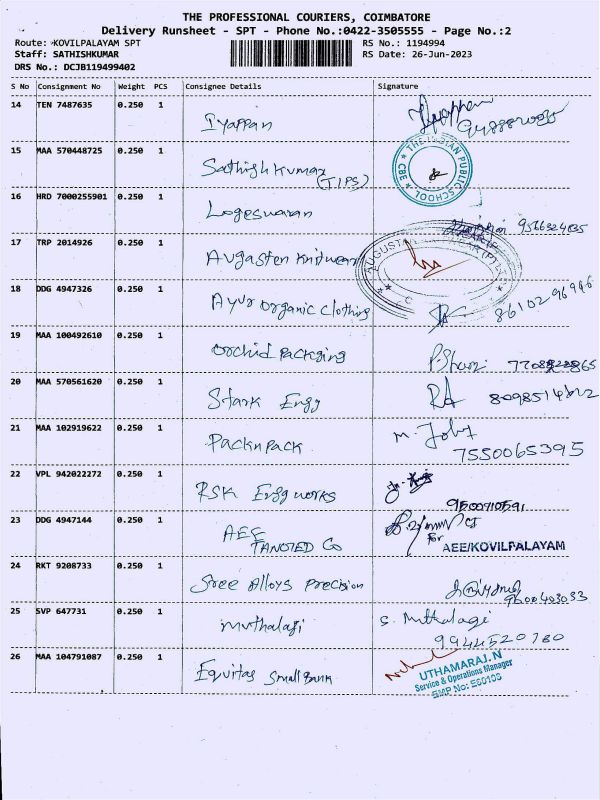 THE PROFESSIONAL COURIERS, COIMBATORE
Delivery Runsheet - SPT - Phone No.:0422-3505555 - Page No.:2
Route: KOVILPALAYAM SPT RS No.: 1194994
Staff: SATHISHKUMAR RS Date: 26-Jun-2023
DRS No.: DCJB119499402
S No Consignment No Weight PCS Consignee Details Signature
14 TEN 7487635 0.250 1 Iyappan
15 MAA 570448725 0.250 1 Sathish Kumar
(TIPS)
THE INDIAN PUBLIC SCHOOL CBE
16 HRD 7000255901 0.250 1 Logeswaran
17 TRP 2014926 0.250 1 Augasten Knitwear
AUGUSTA
18 DDG 4947326 0.250 1 Ayur organic clothing
19 MAA 100492610 0.250 1 Orchid Packging
20 MAA 570561620 0.250 1 Stark Engg
21 MAA 102919622 0.250 1 PacknPack M. Joby
7550065395
22 VPL 942022272 0.250 1 RSK Engg works
9500910591
23 DDG 4947144 0.250 1 AEE
TANGTED Co
for
AEE/KOVILPALAYAM
24 RKT 9208733 0.250 1 Sree Alloys Precision
25 SVP 647731 0.250 1 Muthalagi S. Muthalagi
9944520780
26 MAA 104791087 0.250 1 Equitas Small Bank
UTHAMARAJ.N
Service & Operations Manager
EMP No: E60106